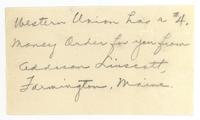 Western Union has a $4.
Money Order for you from
Addison Linscott,
Farmington, Maine.